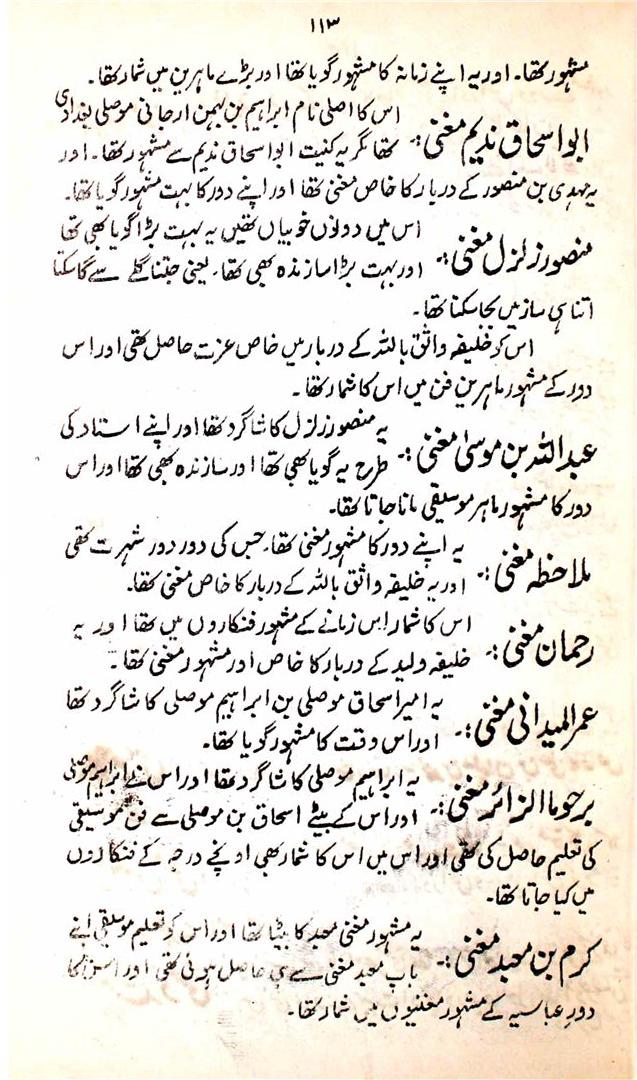 ۱۱۳
مشہور تھا۔ اور یہ اپنے زمانہ کا مشہور گویا تھا اور بڑے ماہرین میں شمار تھا۔
ابو اسحاق ندیم مغنی:۔ اس کا اصلی نام ابراہیم بن بہمن ارجانی موصلی بغدادی
تھا مگر یہ کنیت ابو اسحاق ندیم سے مشہور تھا۔ اور
یہ مہدی بن منصور کے دربار کا خاص مغنی تھا اور اپنے دور کا بہت مشہور گویا تھا۔
منصور زلزل مغنی:۔ اس میں دونوں خوبیاں تھیں یہ بہت بڑا گویا بھی تھا
اور بہت بڑا سازندہ بھی تھا۔ یعنی جتنا گلے سے گا سکتا
اتنا ہی ساز میں بجا سکتا تھا۔
اس کو خلیفہ واثق باللہ کے دربار میں خاص عزت حاصل تھی اور اس
دور کے مشہور ماہرین فن میں اس کا شمار تھا۔
عبداللہ بن موسیٰ مغنی:۔ یہ منصور زلزل کا شاگرد تھا اور اپنے استاد کی
طرح یہ گویا بھی تھا اور سازندہ بھی تھا اور اس
دور کا مشہور ماہر موسیقی مانا جاتا تھا۔
ملاحظہ مغنی:۔ یہ اپنے دور کا مشہور مغنی تھا۔ جس کی دور دور شہرت تھی
اور یہ خلیفہ واثق باللہ کے دربار کا خاص مغنی تھا۔
رحمان مغنی:۔ اس کا شمار اس زمانے کے مشہور فنکاروں میں تھا اور یہ
خلیفہ ولید کے دربار کا خاص اور مشہور مغنی تھا۔
عمر المیدانی مغنی:۔ یہ امیر اسحاق موصلی بن ابراہیم موصلی کا شاگرد تھا
اور اس وقت کا مشہور گویا تھا۔
برحوما الزائر مغنی:۔ یہ ابراہیم موصلی کا شاگرد تھا اور اس نے ابراہیم موصلی
اور اس کے بیٹے اسحاق بن موصلی سے فن موسیقی
کی تعلیم حاصل کی تھی اور اس میں اس کا شمار بھی اونچے درجہ کے فنکاروں
میں کیا جاتا تھا۔
کرم بن معبد مغنی:۔ یہ مشہور مغنی معبد کا بیٹا تھا اور اس کو تعلیم موسیقی اپنے
باپ معبد مغنی سے ہی حاصل ہوئی تھی اور اس کا
دورِ عباسیہ کے مشہور مغنیوں میں شمار تھا۔